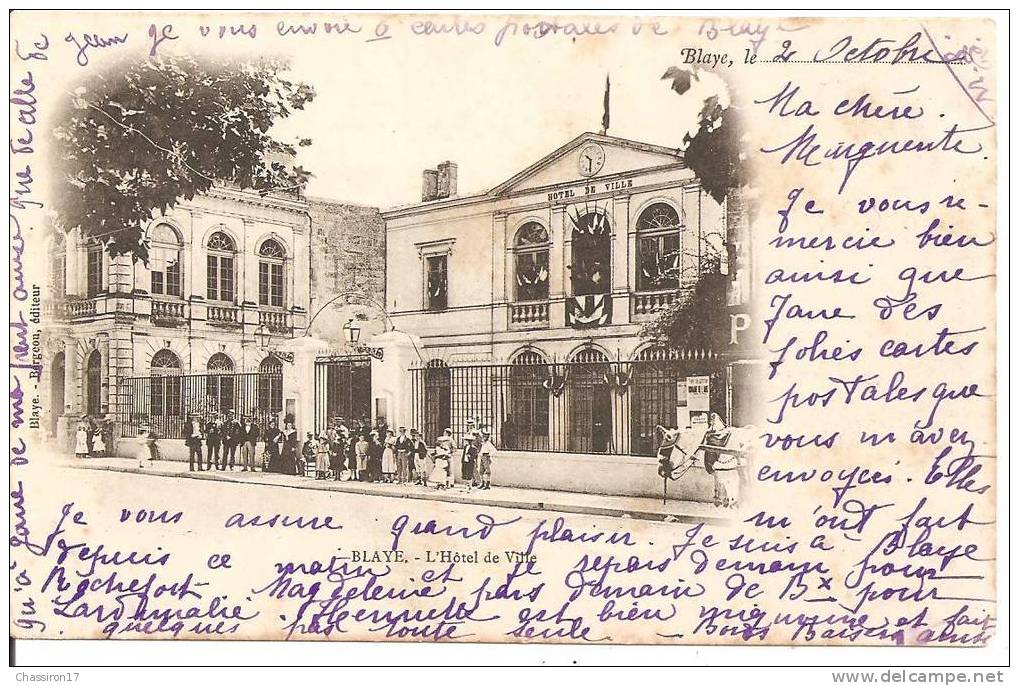 Jean je vous envoie 6 cartes postales de Blaye
Blaye, le 2 Octobre
Ma chère
Marguerite
Je vous re-
mercie bien
ainsi que
Jane des
jolies cartes
postales que
vous m'avez
envoyées. Elles
m'ont fait
grand plaisir. Je suis à Blaye
Je vous assure
depuis ce matin et je repars demain pour
Rochefort. Magdeleine pars demain de Bx pour
Henriette est bien mignonne et fait
quelques pas toute seule. Bons Baisers
ainsi
qu'à Jane de ma part ainsi que de celle de
HOTEL DE VILLE
P
BLAYE. - L'Hôtel de Ville
Blaye. - Bergeon, éditeur
Chassiron17
www.delcampe.net